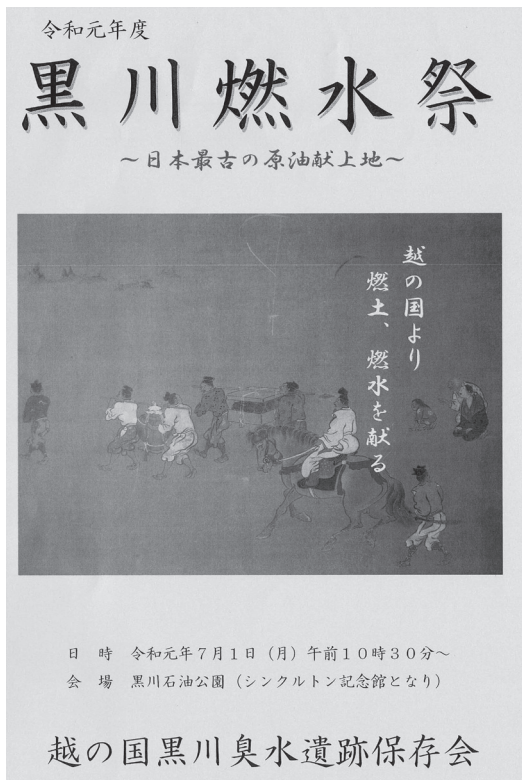 令和元年度
黒川燃水祭
～日本最古の原油献上地～
越の国より
燃土、燃水を献る
日　時　令和元年７月１日（月）午前１０時３０分～
会　場　黒川石油公園（シンクルトン記念館となり）
越の国黒川臭水遺跡保存会